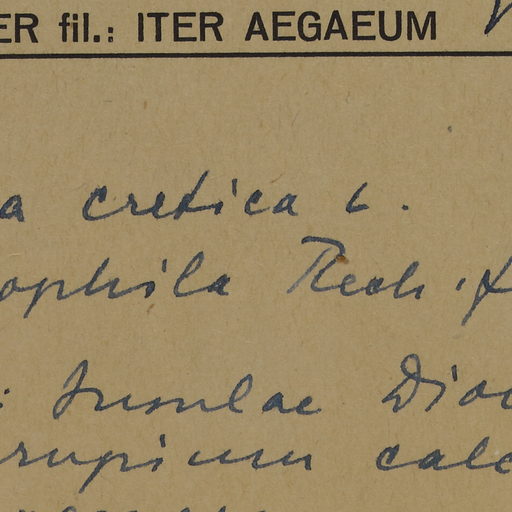 ER fil.: ITER AEGAEUM
a cretica L.
ophila Rech. f
: Insulae Dio
rupium calc